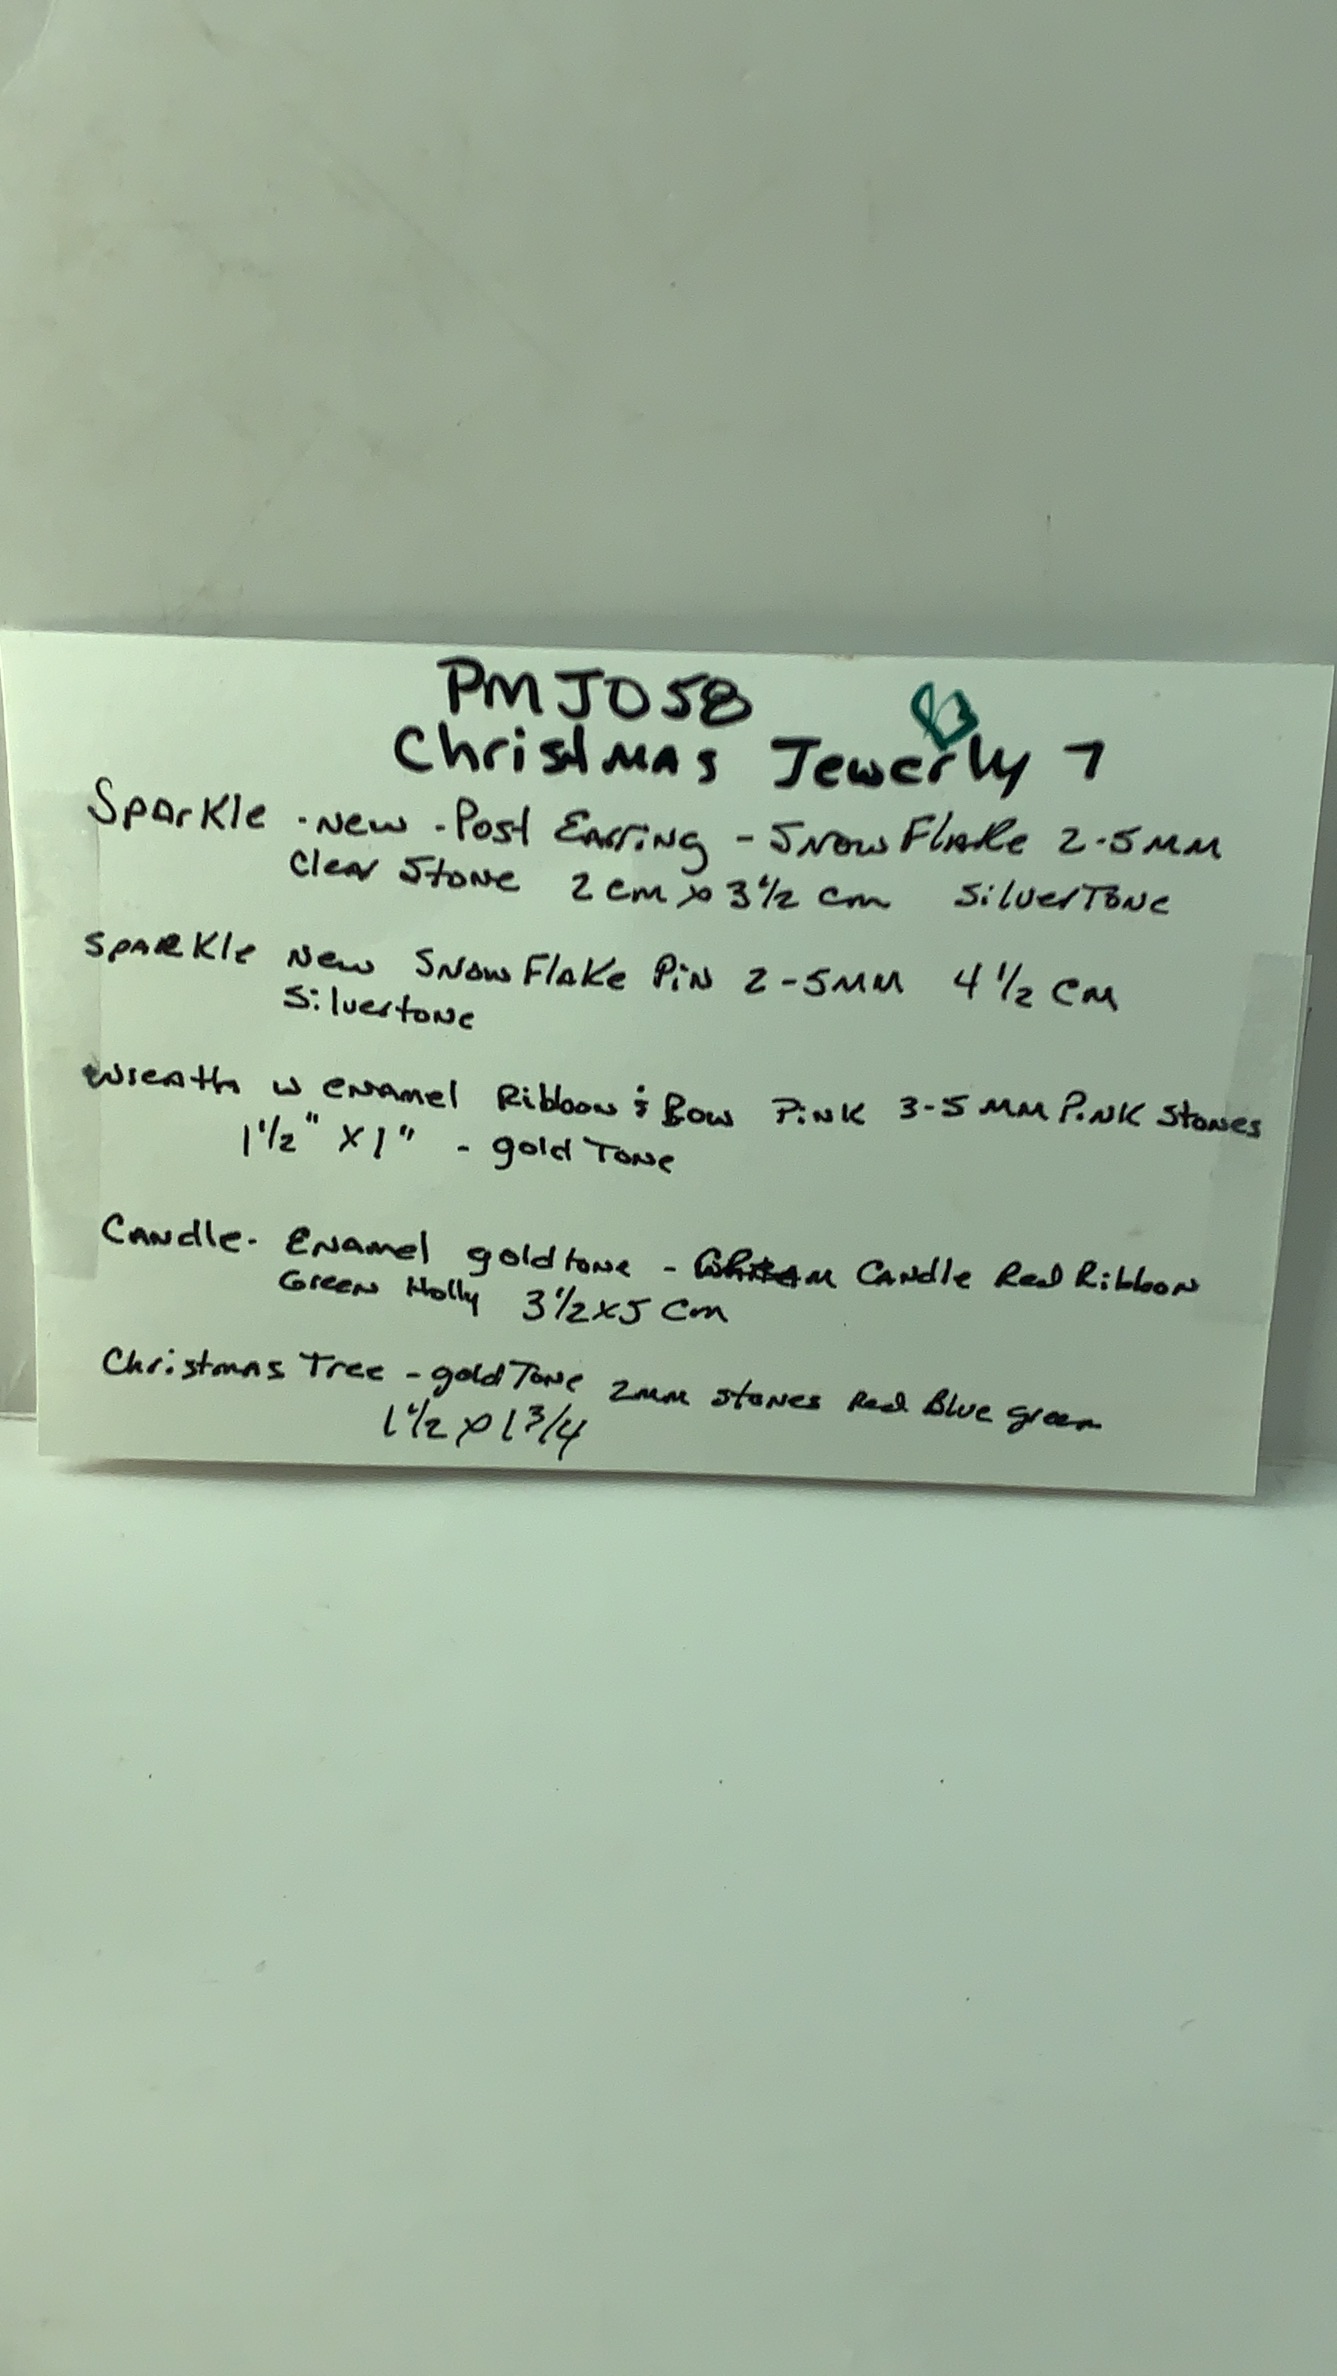 PMJ058
Christmas Jewerly 7
Sparkle - New - Post Earring - SnowFlake 2-5MM
Clear Stone 2 cm x 3 1/2 cm SilverTone
Sparkle New SnowFlake Pin 2-5MM 4 1/2 cm
Silvertone
Wreath w enamel Ribbon & Bow Pink 3-5 MM Pink Stones
1 1/2" X 1" - gold Tone
Candle - Enamel goldtone - Candle Red Ribbon
Green Holly 3 1/2 x 5 cm
Christmas Tree - goldTone 2mm stones Red Blue green
1 1/2 x 1 3/4